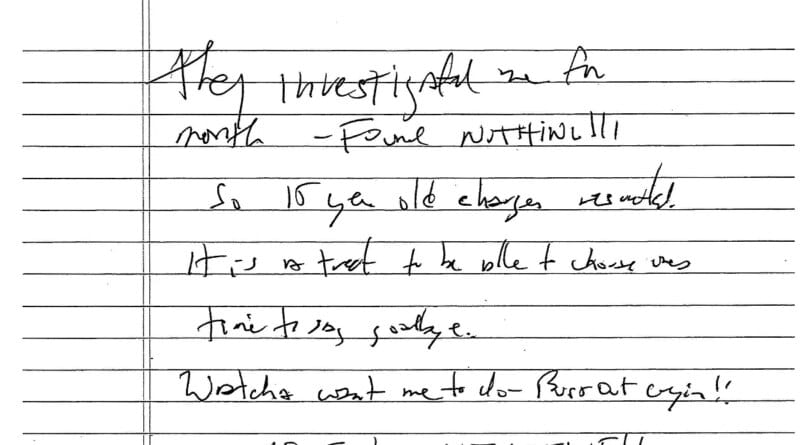 They investigated me for
month – Found NOTHING!!!
So 15 year old charges resulted.
It is a treat to be able to choose ones
time to say goodbye.
Watcha want me to do – Burst out cryin!!